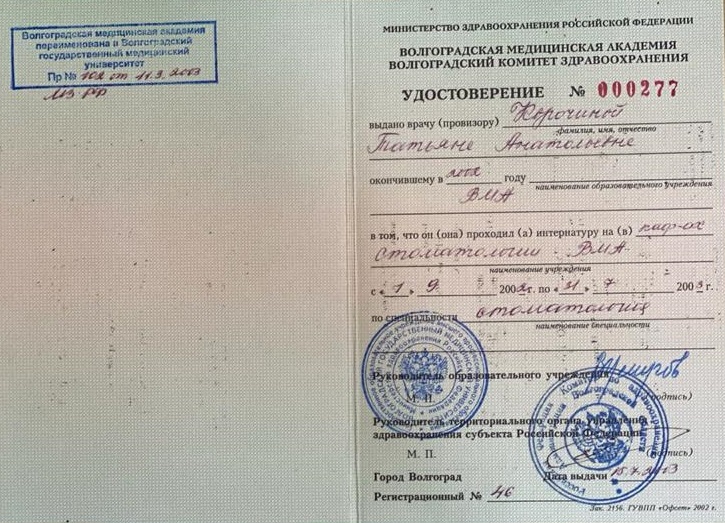 Волгоградская медицинская академия
переименована в Волгоградский
государственный медицинский
университет
Пр № 102 от 11.3.2003
МЗ РФ
МИНИСТЕРСТВО ЗДРАВООХРАНЕНИЯ РОССИЙСКОЙ ФЕДЕРАЦИИ
ВОЛГОГРАДСКАЯ МЕДИЦИНСКАЯ АКАДЕМИЯ
ВОЛГОГРАДСКИЙ КОМИТЕТ ЗДРАВООХРАНЕНИЯ
УДОСТОВЕРЕНИЕ № 000277
выдано врачу (провизору) Корочиной
фамилия, имя, отчество
Татьяне Анатольевне
окончившему в 2002 году
наименование образовательного учреждения
ВМА
в том, что он (она) проходил (а) интернатуру на (в) каф-ах
стоматологии ВМА
наименование учреждения
с «1» 9 2002г. по «31» 7 2003г.
по специальности стоматология
наименование специальности
Руководитель образовательного учреждения
М. П.
(подпись)
Руководитель территориального органа управления
здравоохранения субъекта Российской Федерации
М. П.
(подпись)
Город Волгоград Дата выдачи 15.7.2003
Регистрационный № 46
Зак. 2156. ГУВПП «Офсет» 2002 г.